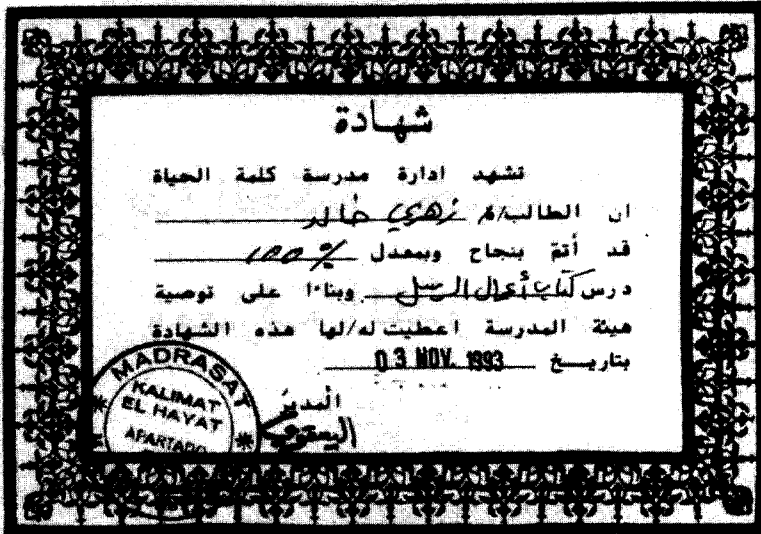 شهادة
تشهد ادارة مدرسة كلمة الحياة
ان الطالب/ة زهري خالد
قد أتمّ بنجاح وبمعدل 100%
درس كتاب أعمال الرسل وبناءًا على توصية
هيئة المدرسة اعطيت له/لها هذه الشهادة
بتاريخ 03 NOV. 1993
المدير
MADRASAT
KALIMAT
EL HAYAT
APARTADO